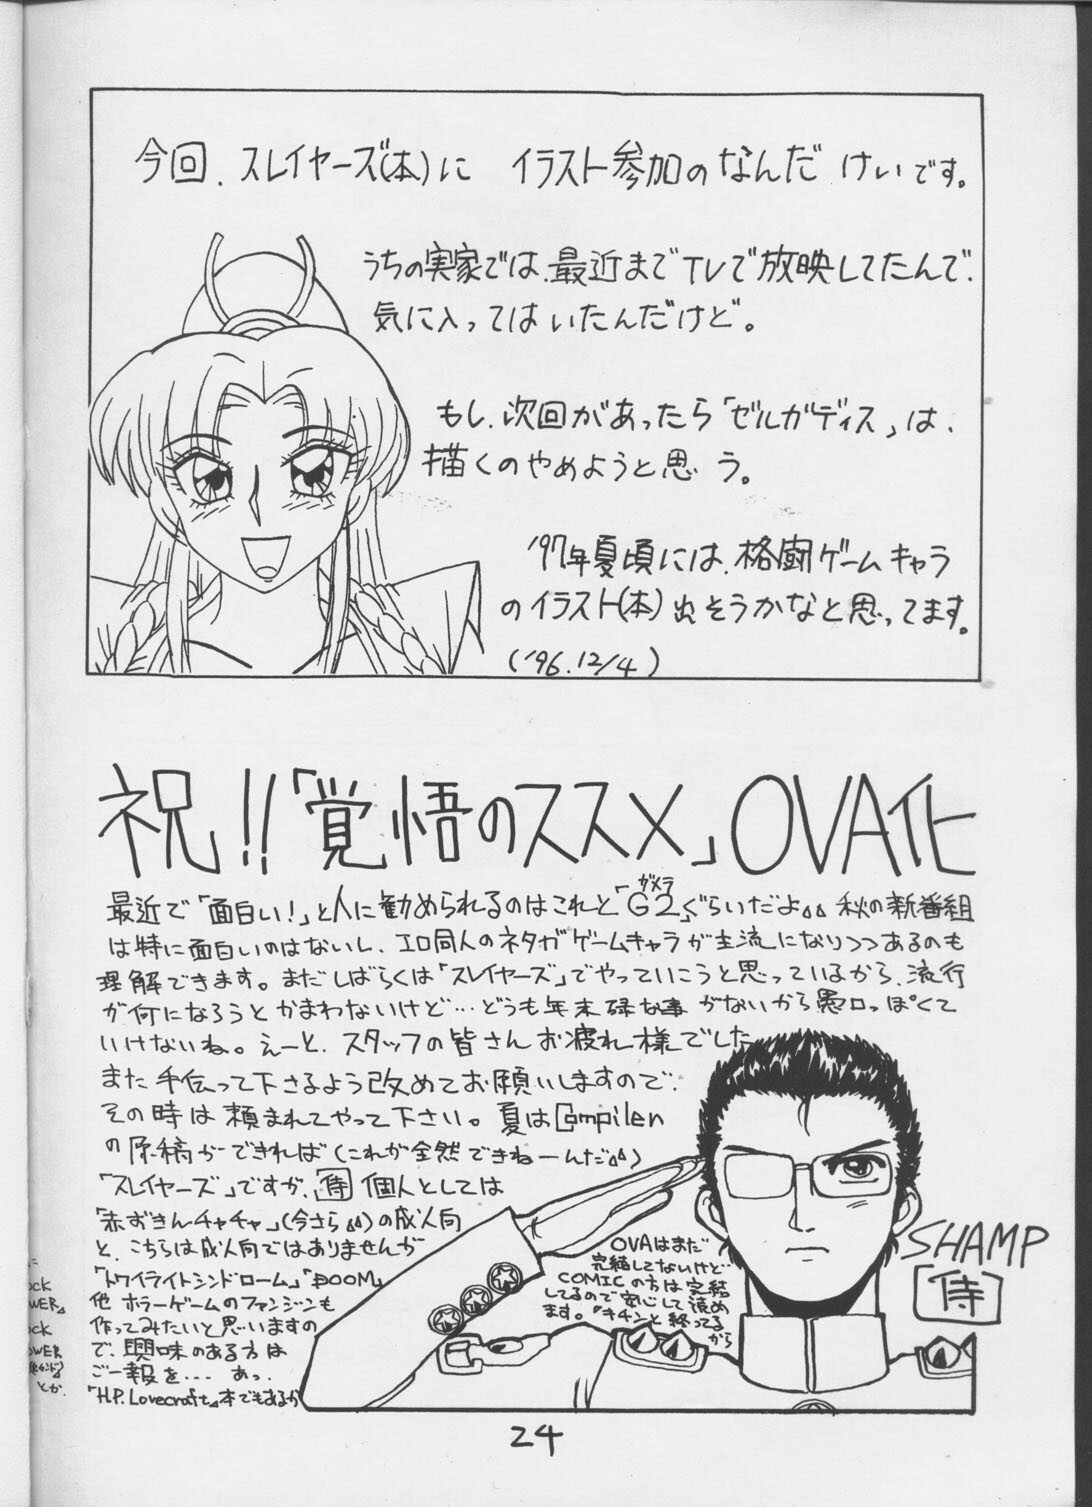 今回、スレイヤーズ(本)に イラスト参加の なんだ けいです。
うちの実家では、最近まで TVで放映してたんで、
気に入ってはいたんだけど。
もし、次回があったら「ゼルガディス」は、
描くのやめようと思う。
'97年夏頃には、格闘ゲームキャラ
のイラスト(本)出そうかなと思ってます。
('96.12/4)
祝!!「覚悟のススメ」OVA化
最近で「面白い!」と人に勧められるのはこれと「G2」ぐらいだよ 秋の新番組
ガメラ
は特に面白いのはないし、エロ同人のネタがゲームキャラが主流になりつつあるのも
理解できます。まだしばらくは「スレイヤーズ」でやっていこうと思っているから、流行
が何になろうとかまわないけど…どうも年末碌な事がないから愚口っぽくて
いけないね。えーと、スタッフの皆さんお疲れ様でした
また手伝って下さるよう改めてお願いしますので、
その時は頼まれてやって下さい。夏はCompilen
の原稿ができれば(これが全然できねーんだ)
「スレイヤーズ」ですが、侍個人としては
「赤ずきんチャチャ」(今さら)の成人向
と、こちらは成人向ではありませんが
「トワイライトシンドローム」「DOOM」
他 ホラーゲームのファンジンも
作ってみたいと思いますの
で、興味のある方は
ご一報を… あっ、
「H.P. Lovecraft」本でもあるか
OVAはまだ
完結してないけど
COMICの方は完結
してるので安心して読め
ます。キチンと終ってる
から
SHAMP
[侍]
24